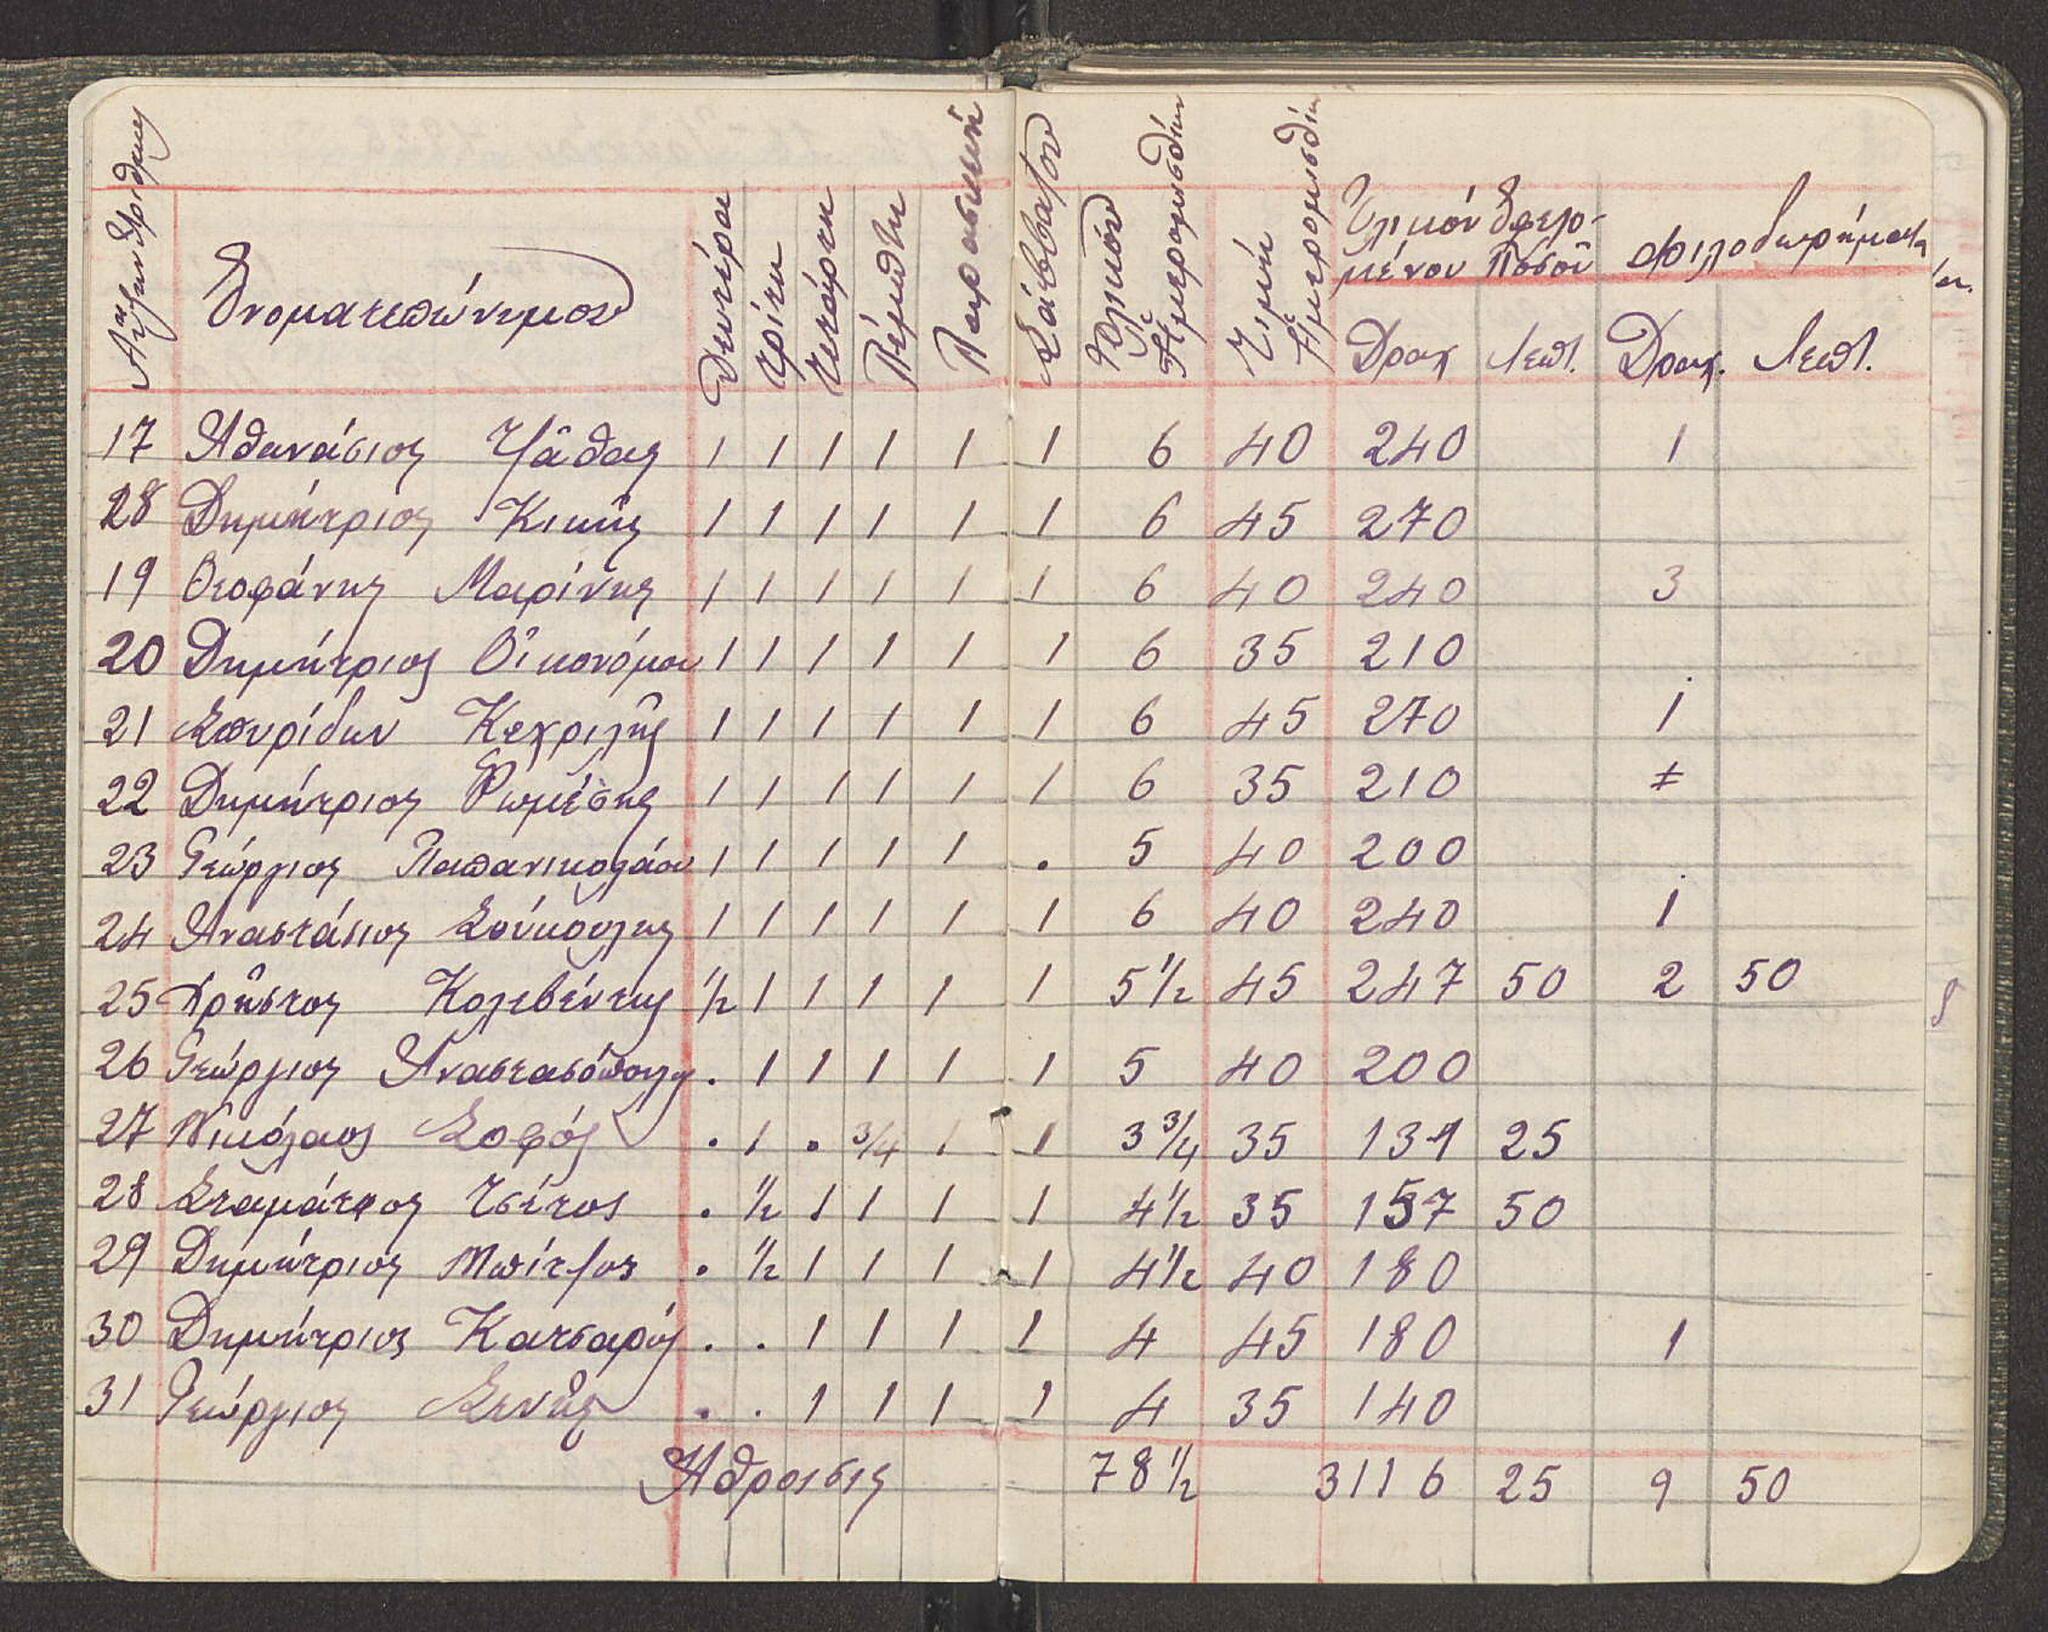 Αὔξων Ἀριθμός Ὀνοματεπώνυμον Δευτέρα Τρίτη Τετάρτη Πέμπτη Παρασκευή Σάββατον Ὁλικόν Ἡμερομισθίων Τιμή Ἡμερομισθίου Ὁλικόν Ὀφειλομένου Ποσοῦ Φιλοδωρήματα
Δραχ Λεπτ. Δραχ. Λεπτ.
17 Ἀθανάσιος Τζάθας 1 1 1 1 1 1 6 40 240 1
28 Δημήτριος Κικῆς 1 1 1 1 1 1 6 45 270
19 Θεοφάνης Μαρίνης 1 1 1 1 1 1 6 40 240 3
20 Δημήτριος Οἰκονόμου 1 1 1 1 1 1 6 35 210
21 Σπυρίδων Κεχριλῆς 1 1 1 1 1 1 6 45 270 1
22 Δημήτριος Ρωμέσης 1 1 1 1 1 1 6 35 210 ≠
23 Γεώργιος Παπανικολάου 1 1 1 1 1 . 5 40 200
24 Ἀναστάσιος Σούκουλης 1 1 1 1 1 1 6 40 240 1
25 Χρῆστος Κολεβέντης ½ 1 1 1 1 1 5 ½ 45 247 50 2 50
26 Γεώργιος Ἀναστασόπουλος . 1 1 1 1 1 5 40 200
27 Νικόλαος Σοφός . 1 . 3/4 1 1 3 3/4 35 131 25
28 Σταμάτιος Τσέτος . ½ 1 1 1 1 4 ½ 35 157 50
29 Δημήτριος Μπίτζος . ½ 1 1 1 1 4 ½ 40 180
30 Δημήτριος Κατσαρός . . 1 1 1 1 4 45 180 1
31 Γεώργιος Ξενῆς . . 1 1 1 1 4 35 140
Ἄθροισις 78 ½ 3116 25 9 50